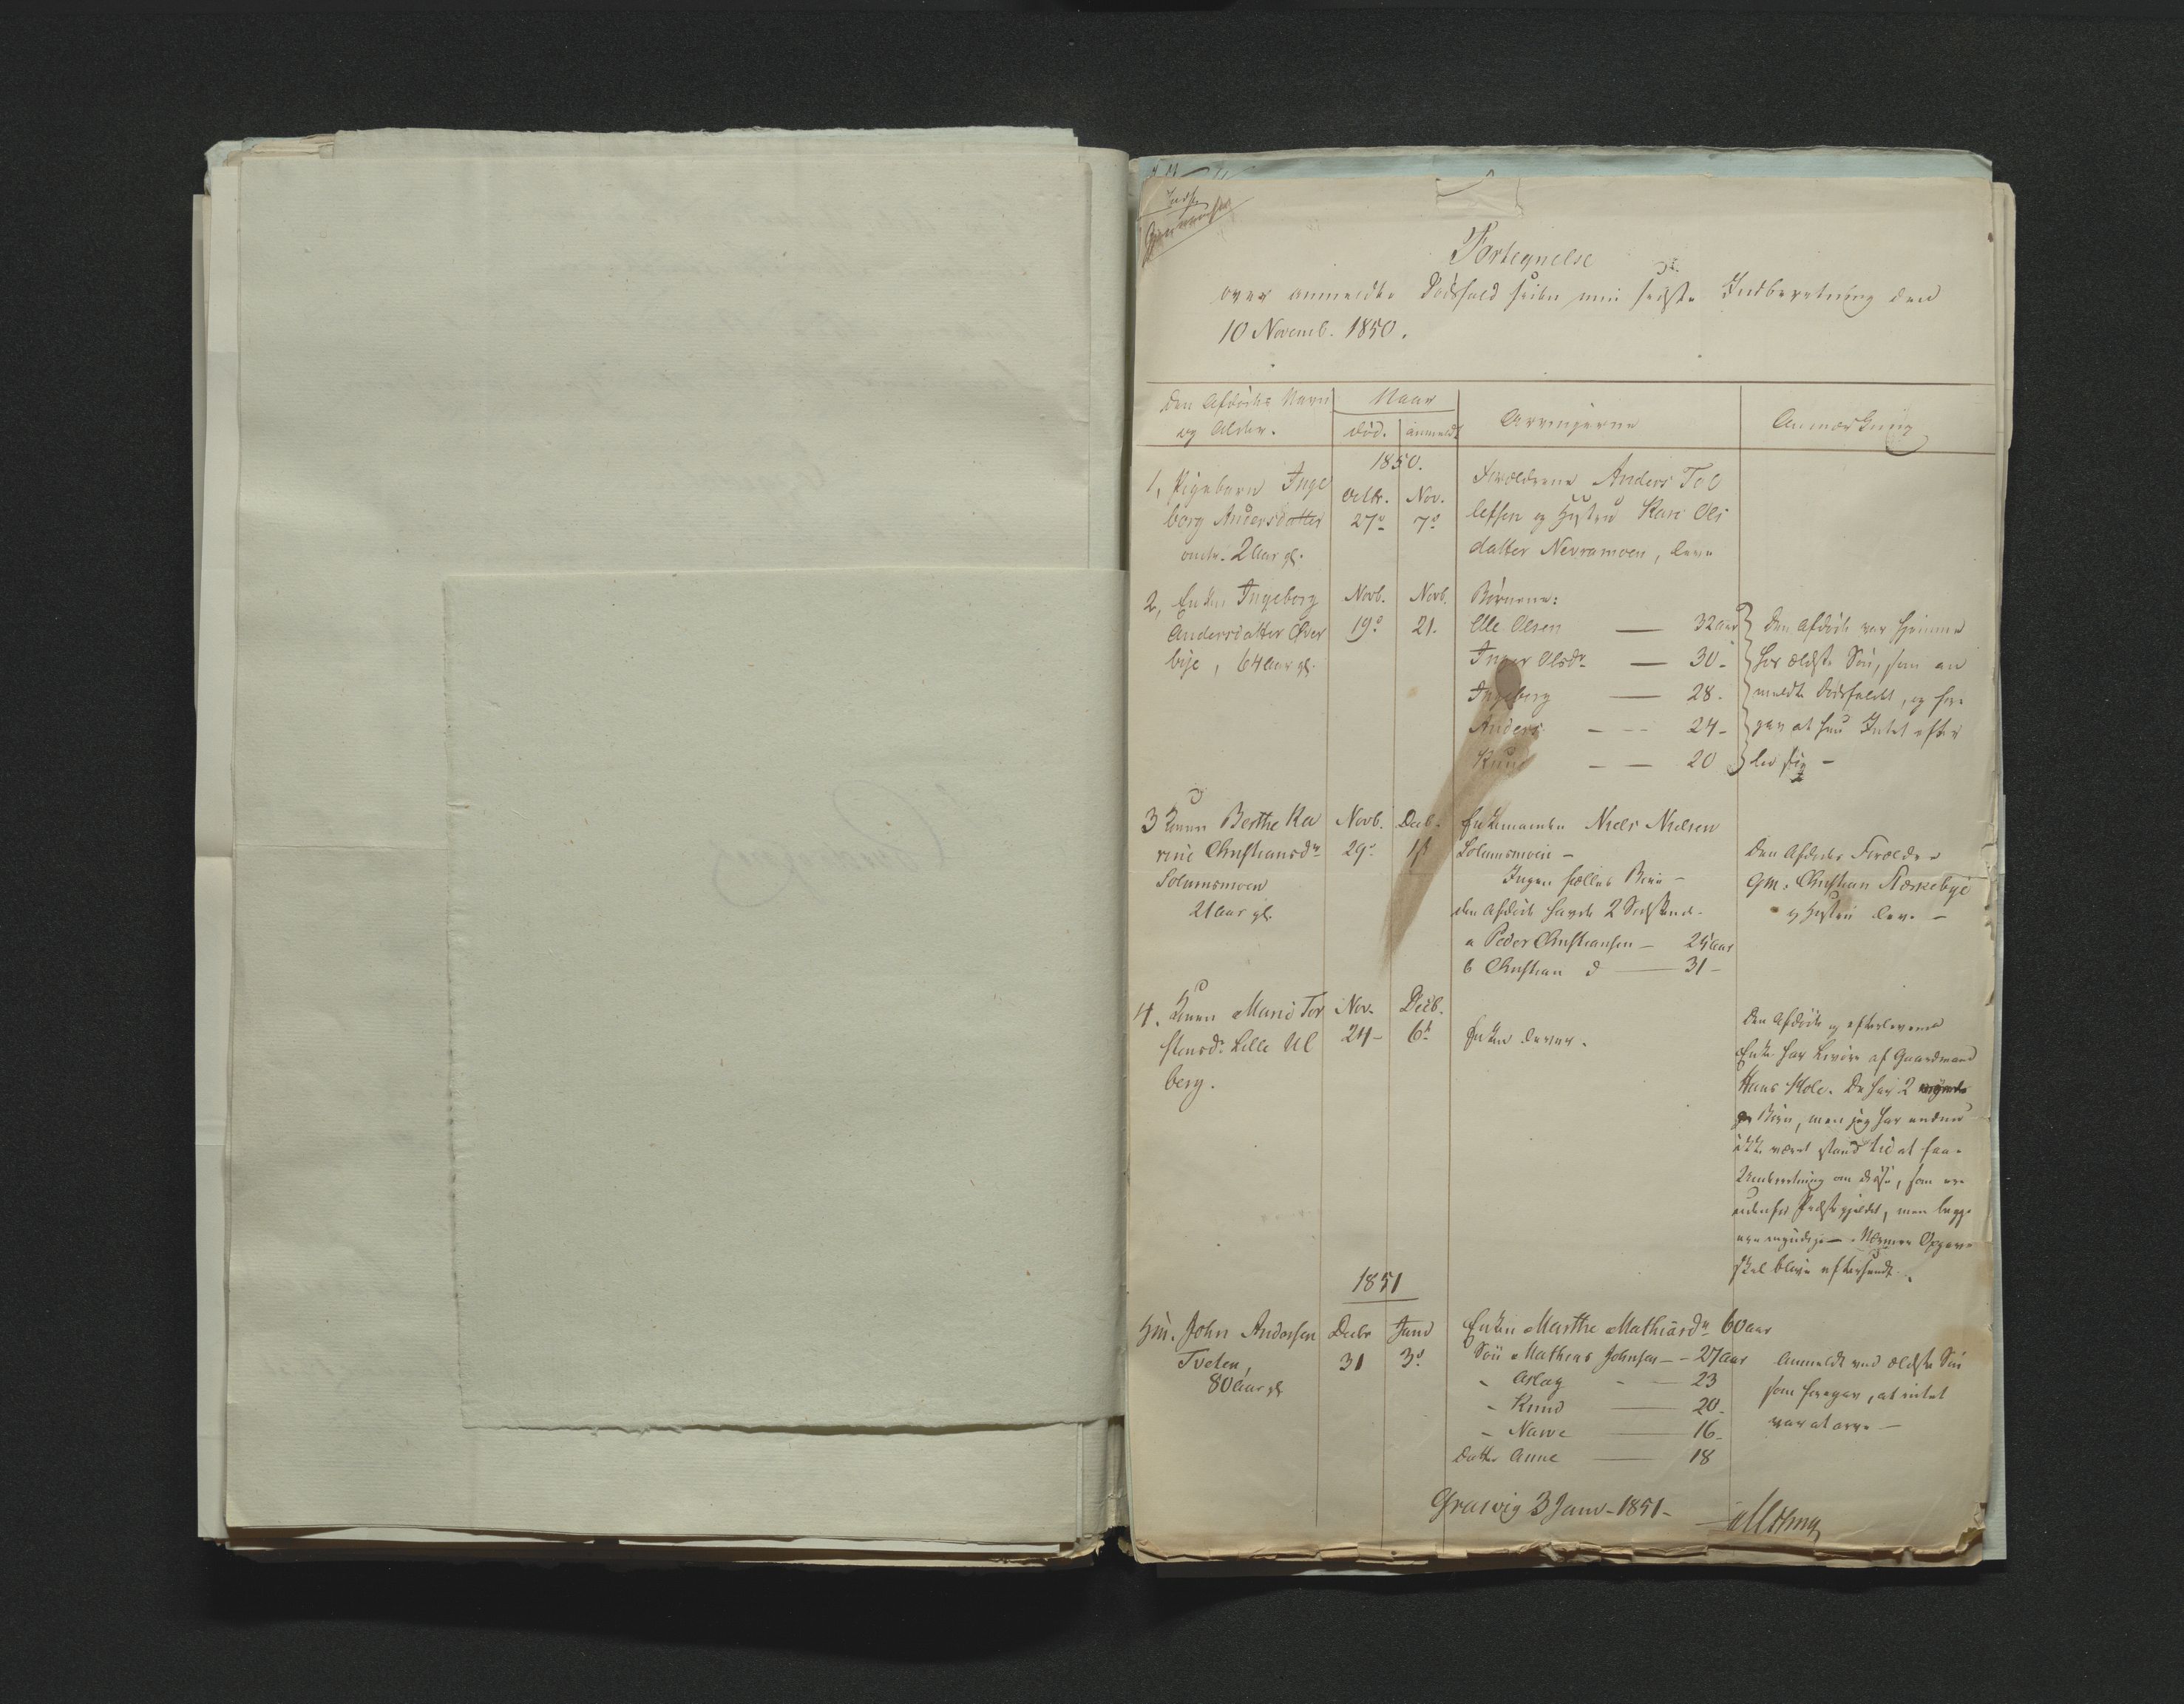 Fortegnelse
over anmeldte Dødsfald siden min sidste Indberetning den
10 Novemb. 1850.
Den Afdødes Navn
og Alder.
Naar
død.
anmeldt
Arvingerne
Anmærkning
1850.
1, Pigebarn Inge
borg Andersdatter
omtr. 2 Aar gl.
Octbr. 27de
Nov. 7de
Forældrene Anders Tol
lefsen og Hustru Kari Ols
datter Nevramoen, leve
2, Enken Ingeborg
Andersdatter Øver
bye, 64 Aar gl.
Novb. 19de
Novb. 21.
Børnene:
Olle Olsen — 32 aar
Inger Olsdr — 30 -
Ingeborg — 28 -
Anders — 24 -
Knud — 20
Den Afdøde var hjemme
hos ældste Søn, som an
meldte Dødsfaldet, og fore
gav at hun Intet efter
lod sig -
3 Konen Berthe Ka
rine Christiansdr
Solumsmoen
21 Aar gl.
Novb. 29de
Decb. 1st
Enkemanden Niels Nielsen
Solumsmoen -
Ingen fælles Børn -
den Afdøde havde 2 Sødskende
a Peder Christiansen — 25 aar
b Christian d — 31 -
Den Afdødes Forældre
Gm. Christian Kærnebye
og Hustru leve -
4. Konen Marie Tor
stensdr Lille Ul
berg.
Nov. 24 -
Decb. 6t
Enken lever.
Den Afdøde og efterlevende
Enke har Levøre af Gaardmand
Hans Hole. De har 2
Børn, men jeg har endnu
ikke været istand til at faae
Underretning om disse, som ere
udenfor Præstegjeldet, men begge
ere myndige - Nærmere Opgave
skal blive eftersendt.
1851
Hm. John Andersen
Tveten,
80 Aar gl
Decbr 31
Janv 3de
Enken Marthe Mathiasdr 60 aar
Søn Mathias Johnsen — 27 aar
- Aslag — 23
- Knud — 20 -
- Narve — 16 -
Datter Anne — 18
Anmeldt ved ældste Søn
som foregav, at intet
var at arve -
Gravvig 3 Janv - 1851 -